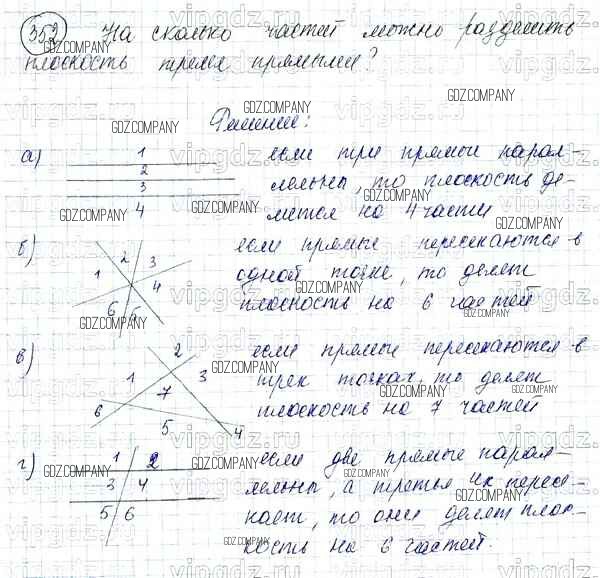 352 На сколько частей можно разделить
плоскость тремя прямыми?
Решение:
а) 1 если три прямые парал-
2
3 лельны, то плоскость де-
4 лится на 4 части
б) 1 2 3 4 5 6 если прямые пересекаются в
одной точке, то делят
плоскость на 6 частей
в) 1 2 3 4 5 6 7 если прямые пересекаются в
трех точках, то делят
плоскость на 7 частей
г) 1 2 если две прямые парал-
3 4 лельны, а третья их пересе-
5 6 кает, то они делят плос-
кость на 6 частей.
GDZ.COMPANY
vipgdz.ru